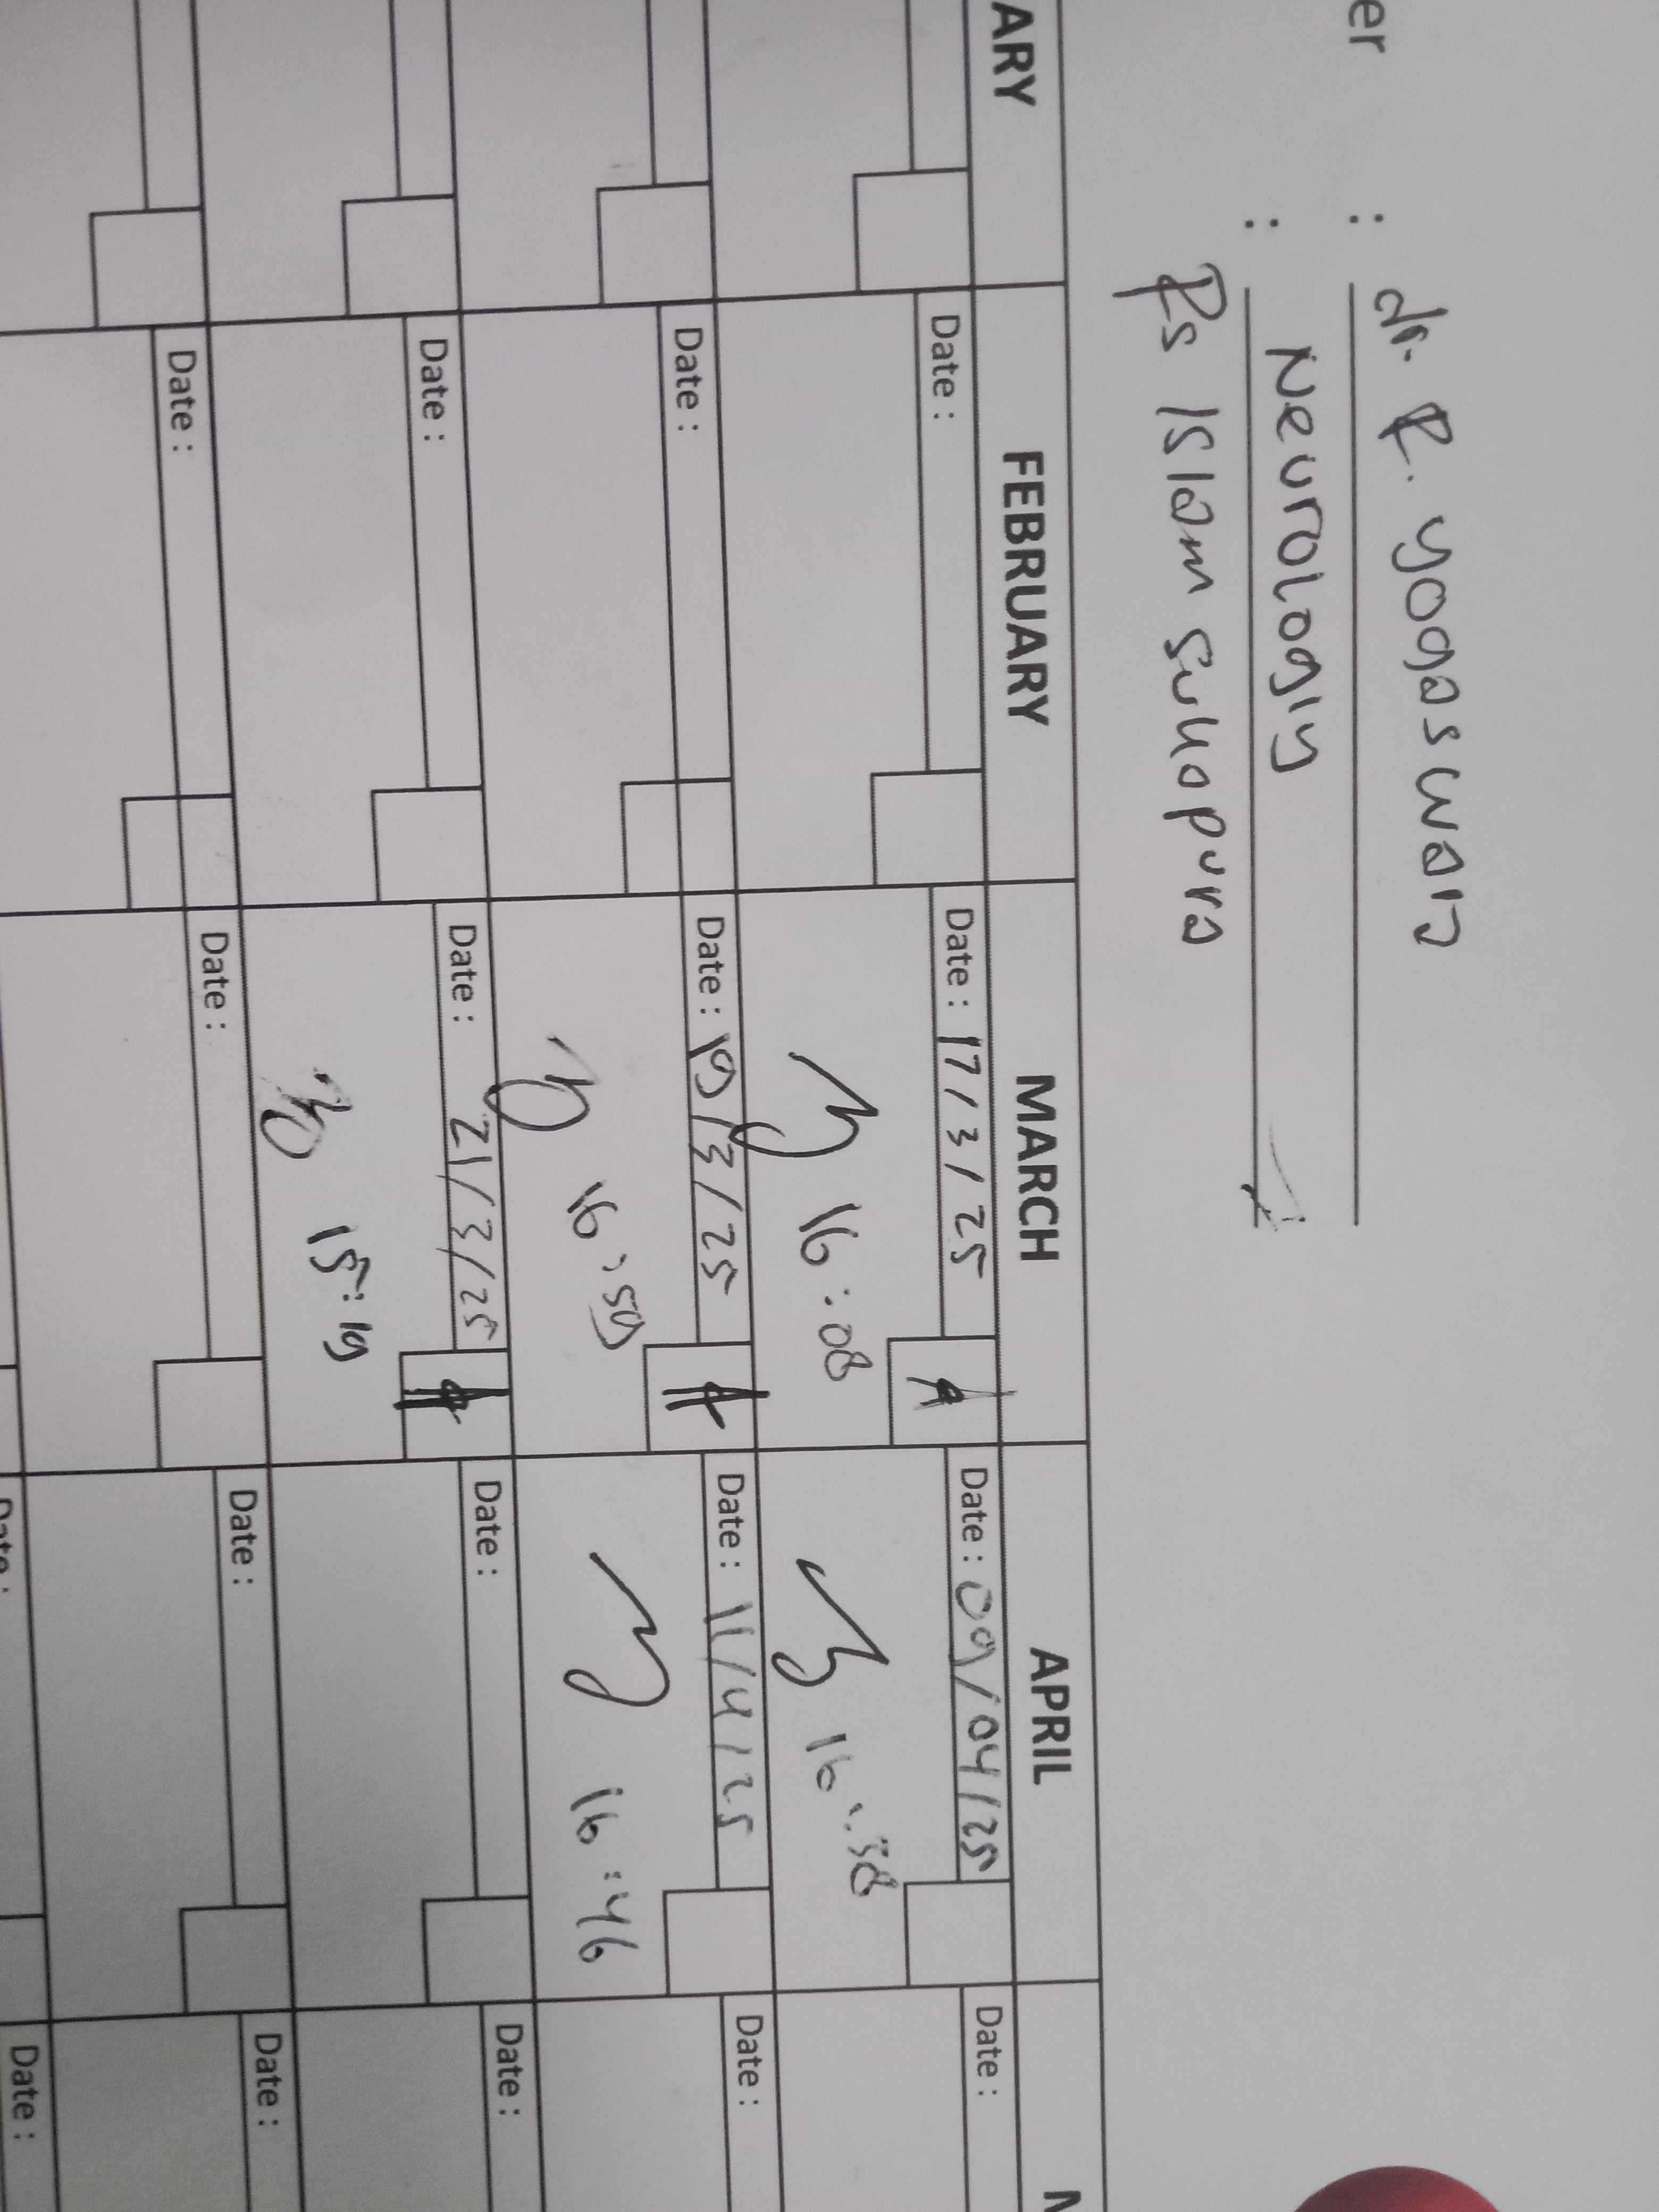 er : dr. R. yogaswara
: Neurology
Rs Islam sukapura
ARY FEBRUARY MARCH APRIL
Date : Date : 17/3/25 A Date : 09/04/25 Date :
16:08 16:38
Date : Date : 19/3/25 A Date : 11/4/25 Date :
16:59 16:46
Date : Date : 21/3/25 A Date : Date :
15:19
Date : Date : Date : Date :
Date : Date :